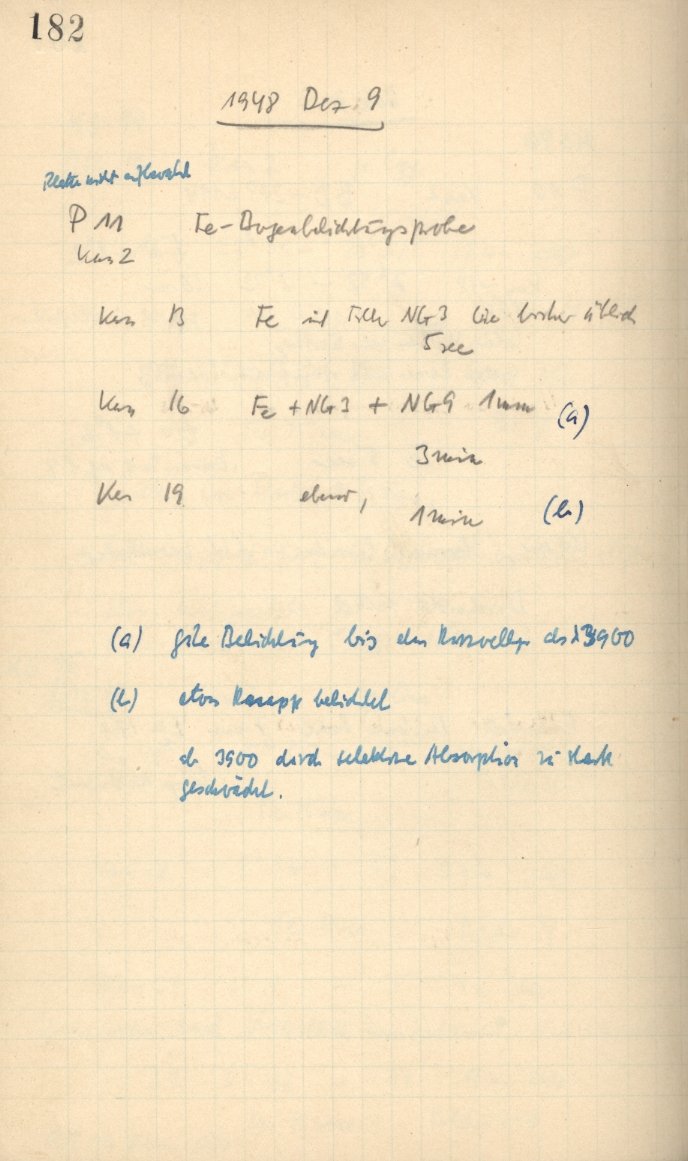 182
1948 Dez. 9
Platte nicht aufbewahrt
P 11 Fe-Bogenbelichtungsprobe
Kas 2
Kas 13 Fe mit Filter NG3 wie bisher üblich
5 sec
Kas 16 Fe + NG3 + NG9 1 min (a)
3 min
Kas 19 ebenso, 1 min (b)
(a) gute Belichtung bis den kurzwelliger als λ 3900
(b) etwas knapp belichtet
ab 3900 durch selektive Absorption zu stark
geschwächt.